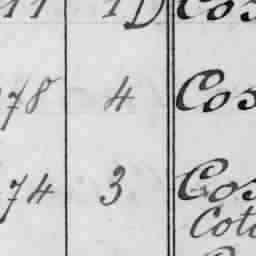 11 1D Cos
78 4 Cos
74 3 Cos
Cot